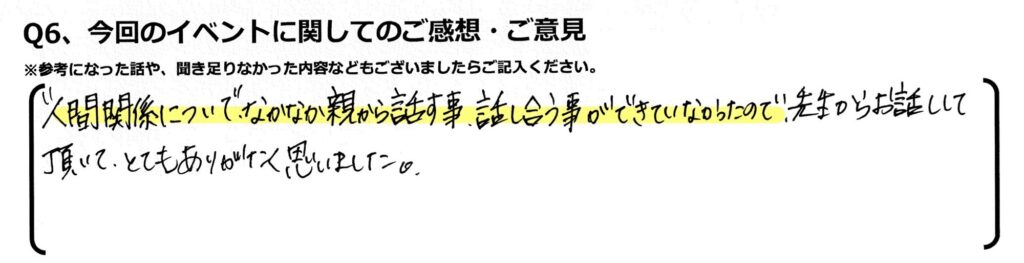 Q6、今回のイベントに関してのご感想・ご意見
※参考になった話や、聞き足りなかった内容などもございましたらご記入ください。
人間関係について、なかなか親から話す事、話し合う事ができていなかったので、先生からお話しして
頂いて、とてもありがたく思いました。